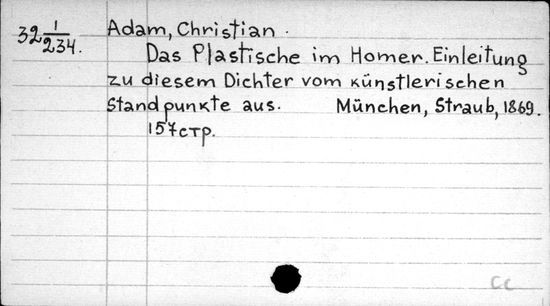 32 1/234. Adam, Christian.
Das Plastische im Homer. Einleitung
zu diesem Dichter vom künstlerischen
Standpunkte aus. München, Straub, 1869.
157 стр.
CC